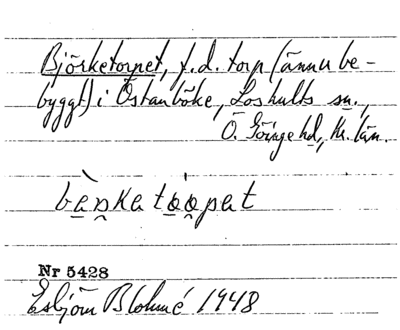 Björketorpet, f.d. torp (ännu be-
byggt) i Östanböke, Loshults sn.,
Ö. Göinge hd, Kr. län.
Nr 5428
Esbjörn Blohmé 1948